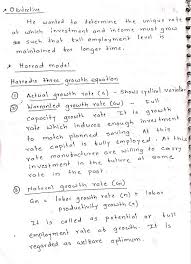 → Objective
He wanted to determine the unique rate
at which investment and income must grow
so such high full employment level is
maintained too longer time.
→ Harrod model
Harrod's three growth equation
① Actual growth rate (G) - Shows cyclical variation
② Warranted growth rate (Gw) - Full
capacity growth rate. It is growth
rate which induces enough investment
to match planned saving. At this
rate capital is fully employed. At this
rate manufacturer are willing to carry
investment in the future at same
rate in the past.
③ Natural growth rate (Gn)
Gn = labor growth rate (n) + labor
productivity growth
It is called as potential or full
employment rate of growth. It is
regarded as welfare optimum.